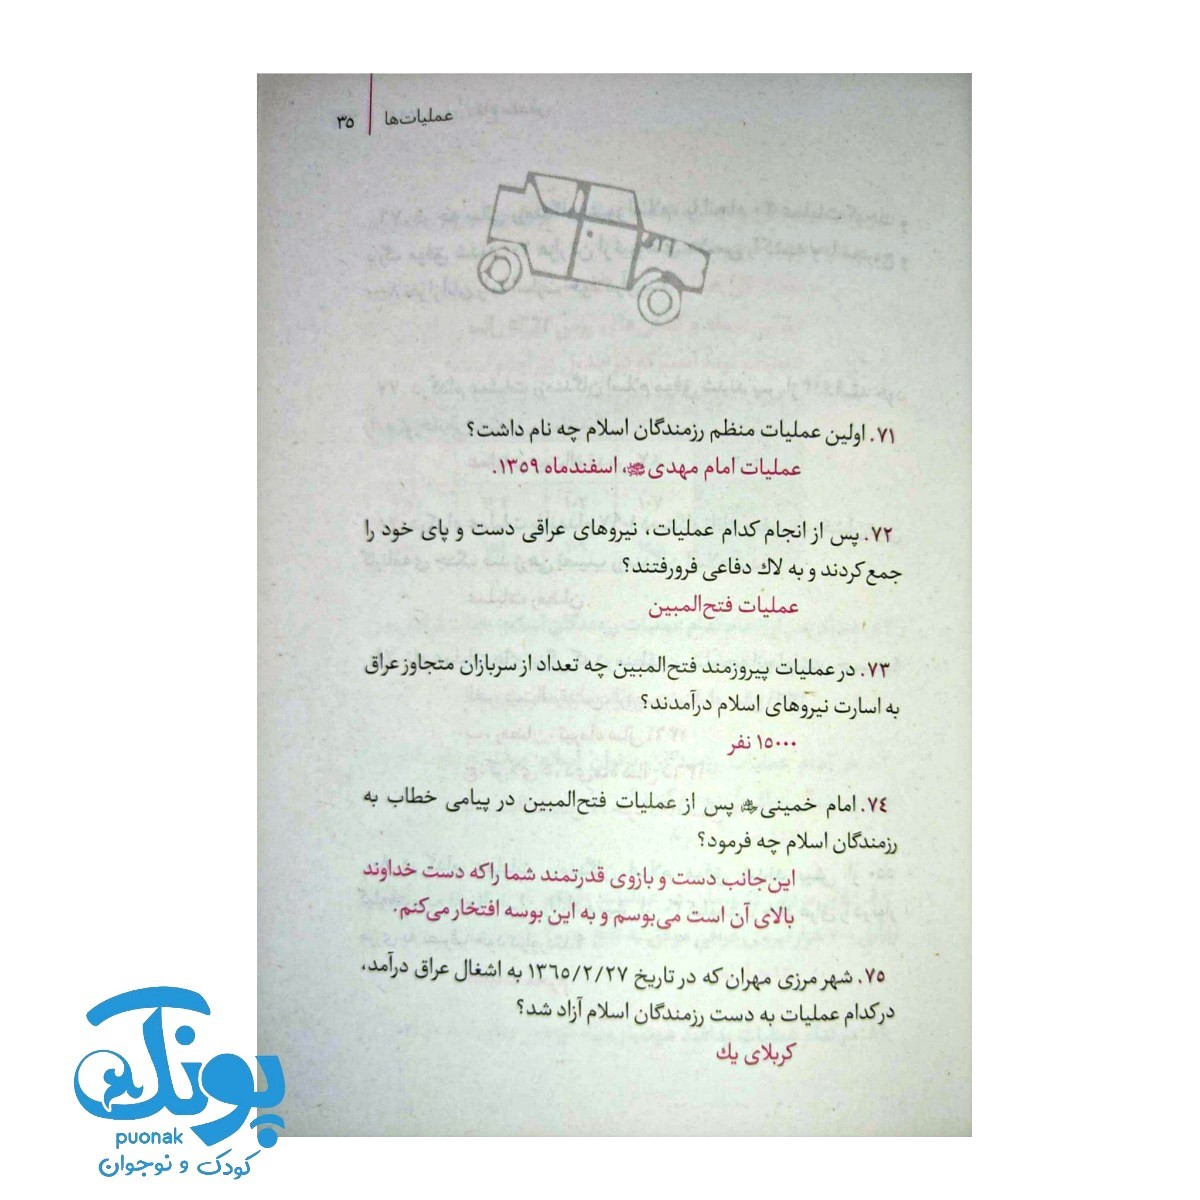 عملیات‌ها | ۳۵
۷۱. اولین عملیات منظم رزمندگان اسلام چه نام داشت؟
عملیات امام مهدی، اسفندماه ۱۳۵۹.
۷۲. پس از انجام کدام عملیات، نیروهای عراقی دست و پای خود را
جمع کردند و به لاك دفاعی فرورفتند؟
عملیات فتح‌المبین
۷۳. در عملیات پیروزمند فتح‌المبین چه تعداد از سربازان متجاوز عراق
به اسارت نیروهای اسلام درآمدند؟
۱۵۰۰۰ نفر
۷۴. امام خمینی پس از عملیات فتح‌المبین در پیامی خطاب به
رزمندگان اسلام چه فرمود؟
این‌جانب دست و بازوی قدرتمند شما را که دست خداوند
بالای آن است می‌بوسم و به این بوسه افتخار می‌کنم.
۷۵. شهر مرزی مهران که در تاریخ ۱۳۶۵/۲/۲۷ به اشغال عراق درآمد،
در کدام عملیات به دست رزمندگان اسلام آزاد شد؟
کربلای یك
پونک
puonak
کودک و نوجوان